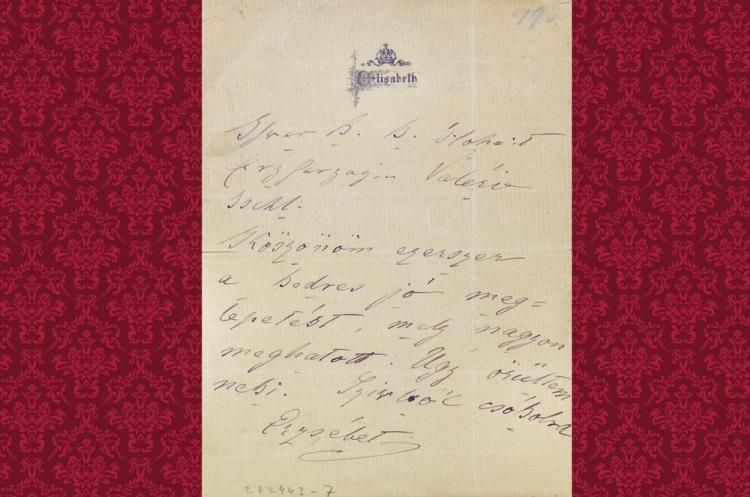 195.
Elisabeth
Ihrer k. k. Hoheit
Erzherzogin Valérie
Ischl.
Köszönöm ezerszer
a kedves jó meg=
lepetést, mely nagyon
meghatott. Ugy örültem
neki. Szivből csókolva
Erzsébet
262443-7